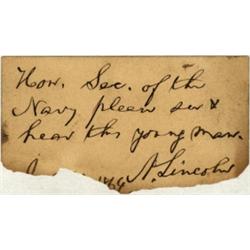 Hon. Sec. of the
Navy please see &
hear this young man.
A. Lincoln
1864